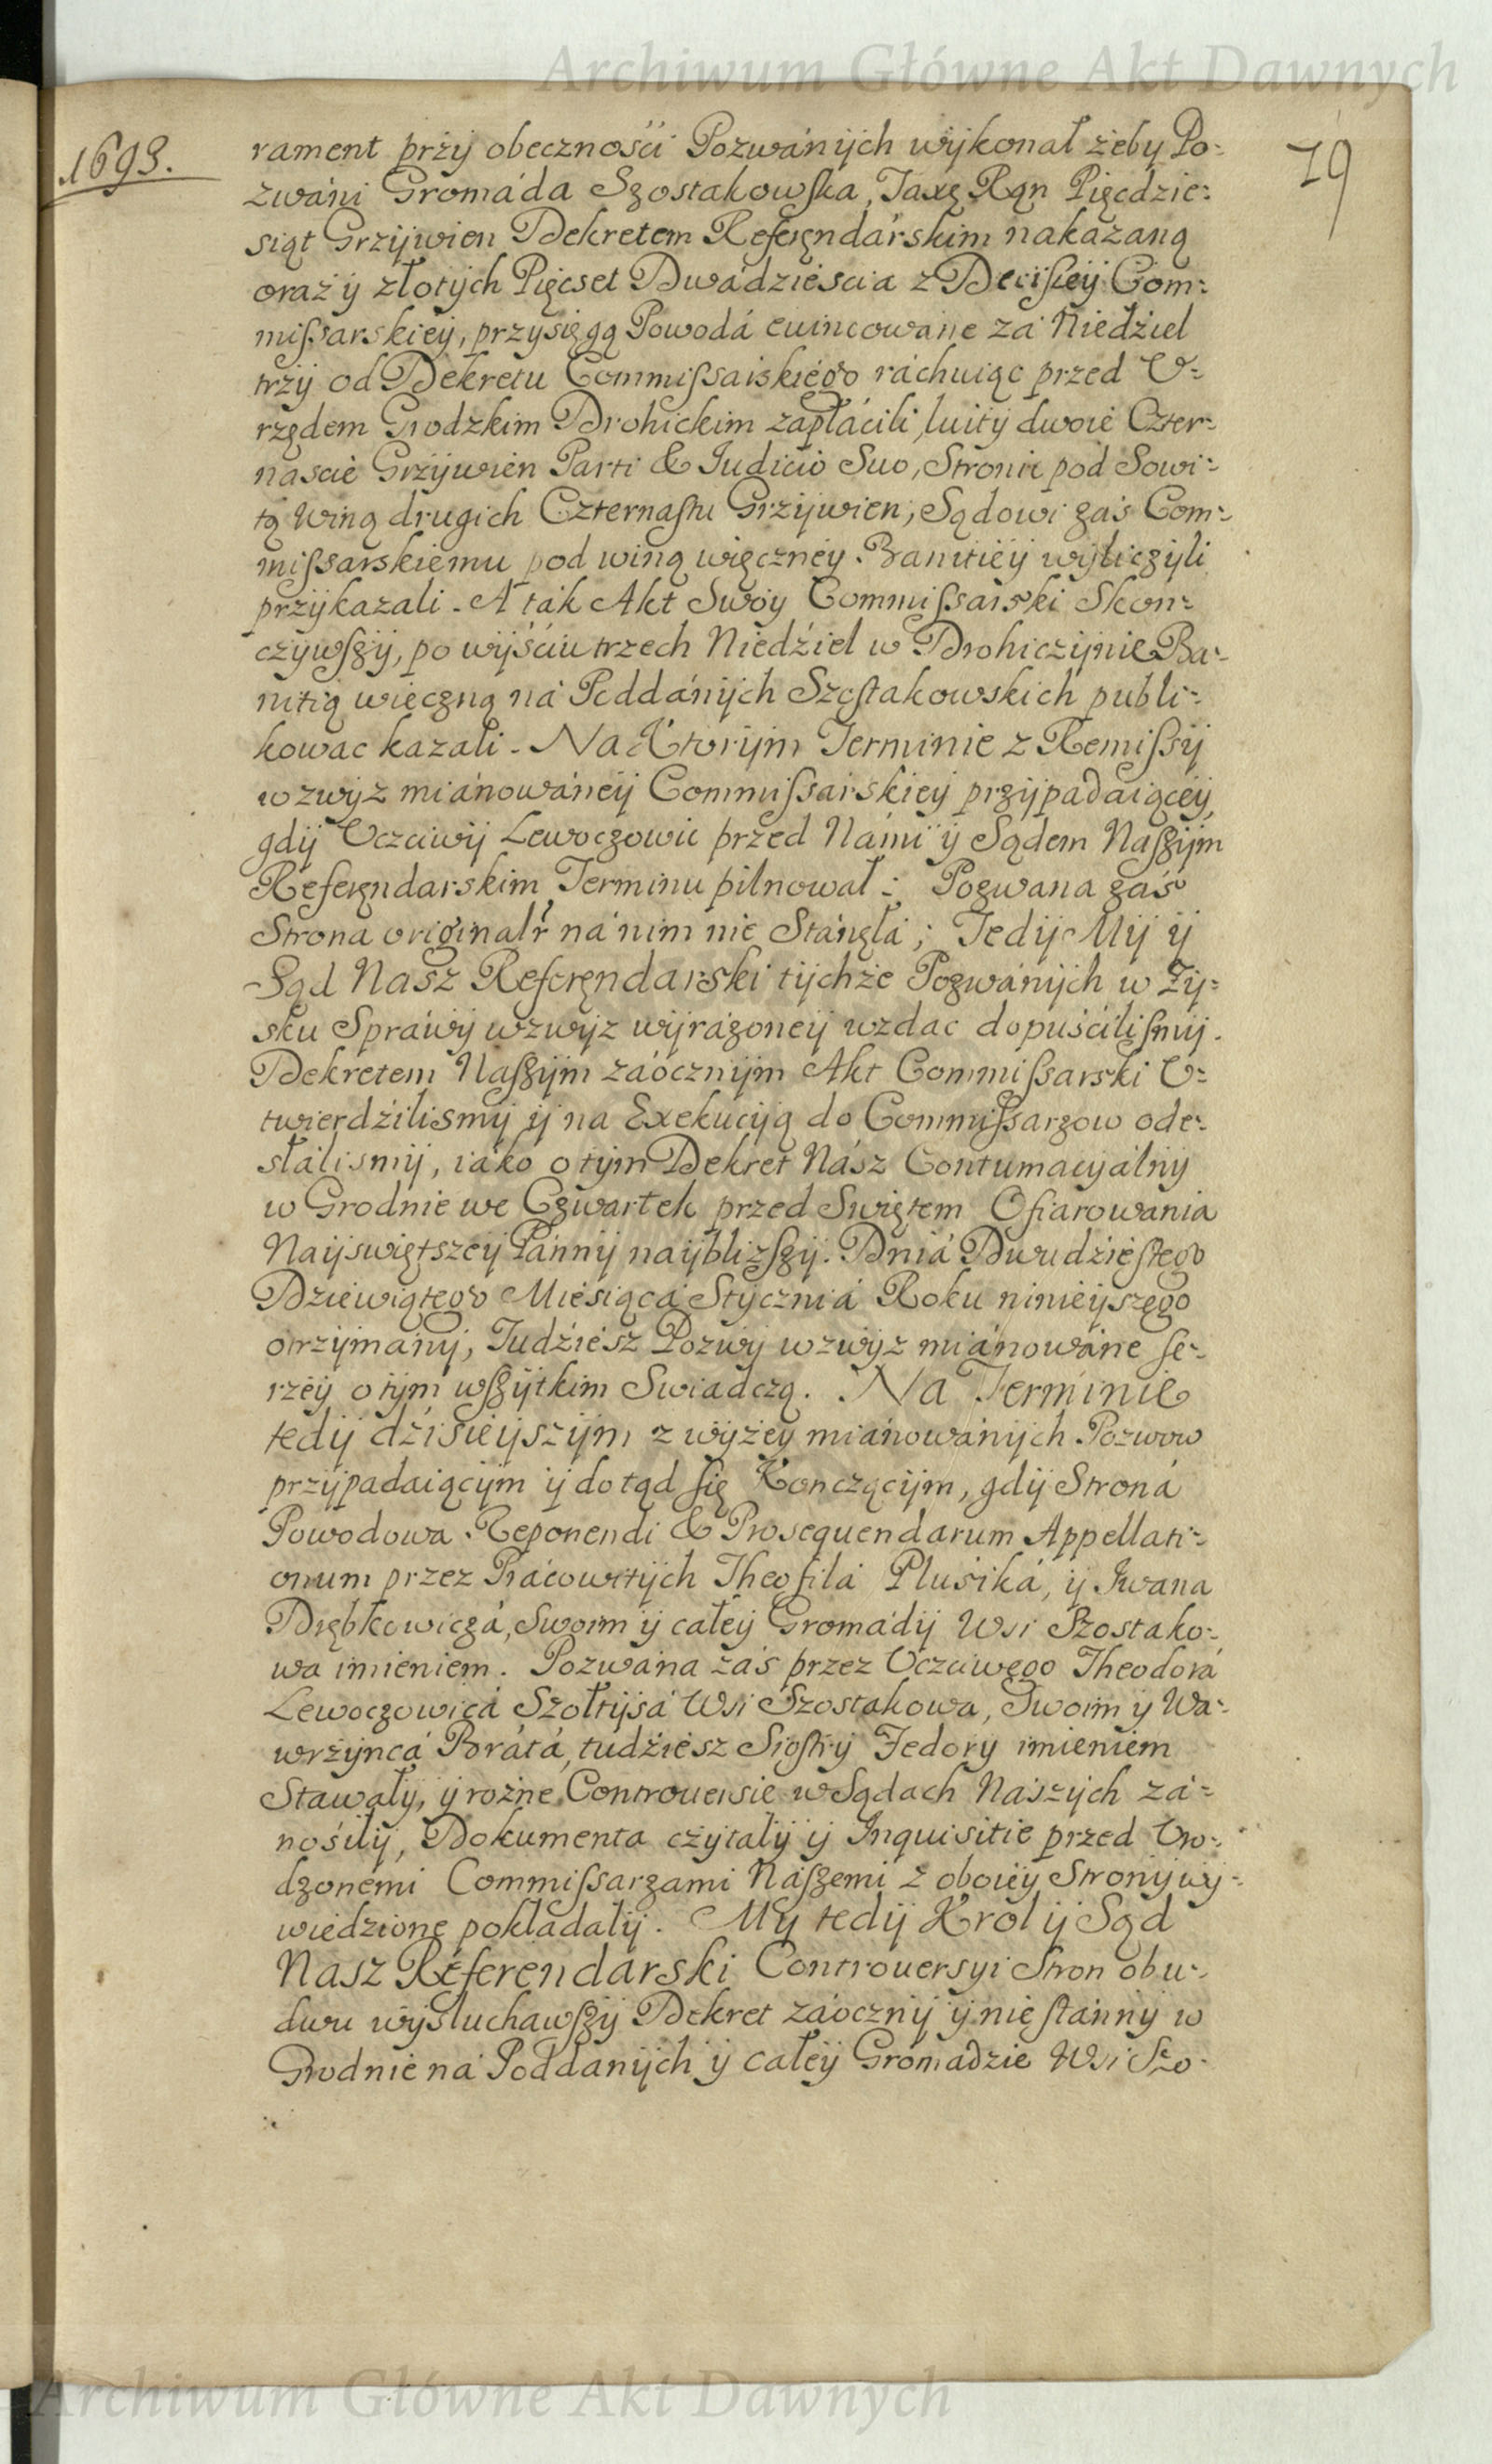 Archiwum Główne Akt Dawnych
1693.
79
rament przÿ obecznośći Pozwánÿch wÿkonał żeby Po=
zwáni Gromáda Szostakowska, Taxę Ran Pięcdzie=
siąt Grzÿwien Dekretem Referęndárskim nakázaną
oraz ÿ złotÿch Pięcset Dwádzieścia z Decisieÿ Com=
missarskieÿ, przysięgą Powodá euincowáne zá Niedźiel
trzÿ od Dekretu Commissarskiégo ráchuiąc przed V=
rzędem Grodzkim Drohickim zapłácili, luitÿ dwoie Czter=
nascie Grzÿwien Parti & Iudicio Suo, Stronie pod Sowi=
tą winą drugich Czternastu Grzÿwien, Sądowi zaś Com=
missarskiemu pod winą więczneÿ Banitieÿ wÿliczÿli
przÿkazali. A ták Akt Swóÿ Commissarski Skon=
czÿwszÿ, po wÿśćiu trzech Niedźiel w DrohiczÿnieBa=
nitią wieczną ná Poddánÿch Szostakowskich publi=
kowac kazali. Na Ktorÿm Terminie z Remissÿ
wzwÿz miánowáneÿ Commissarskieÿ przÿpadaiąceÿ,
gdÿ Vczciwÿ Lewoczowic przed Námi ÿ Sądem Naszÿm
Referęndarskim Terminu pilnował: Pozwana záś
Strona originalr ná nim nie Stánęłá; Tedÿ Mÿ ÿ
Sąd Nasz Referęndarski tÿchże Pozwánÿch w Zÿ=
sku Spráwÿ wzwÿz wÿrázoneÿ wzdac dopuśćilismÿ.
Dekretem Naszÿm záocznÿm Akt Commissarski V=
twierdźilismÿ ÿ na Exekucÿą do Commissarzow ode=
słálismÿ, iáko o tÿm Dekret Nász Contumacÿálnÿ
w Grodnie we Czwartek przed Swiętem Ofiarowania
Naÿswiętszeÿ Pánnÿ naÿblizszÿ. Dniá Dwudźiestego
Dziewiątego Miesiącá Stÿczniá Roku ninieÿszego
otrzÿmánÿ, Tudźiesz Pozwÿ wzwÿz miánowáne se=
rzeÿ o tÿm wszÿtkim Swiadczą. Na Terminie
tedÿ dźisieÿszÿm z wÿżeÿ miánowánÿch Pozwow
przÿpadaiącÿm ÿ dotąd się Konczącÿm, gdÿ Stroná
Powodowa Reponendi & Prosequendarum Appellati=
onum przez Prácowitÿch Theofilá Plusiká, ÿ Iwana
Drębkowiczá, Swoim ÿ całeÿ Gromádÿ Wsi Szostako=
wa imieniem. Pozwána záś przez Vczciwego Theodorá
Lewoczowicá Szołtÿsá Wsi Szostakowa, Swoim ÿ Wa=
wrzÿncá Brátá, tudźiesz Siostrÿ Fedorÿ imieniem
Stawałÿ, ÿ rożne Controuersie w Sądach Nászÿch zá=
nośiłÿ, Dokumenta czÿtałÿ ÿ Inquisitie przed Vro=
dzonemi Commissarzami Nászemi z oboieÿ Stronÿ wÿ=
wiedzione pokładałÿ. Mÿ tedÿ Krol ÿ Sąd
Nasz Referendarski Controuersyi Stron obu=
dwu wÿsłuchawszÿ Dekret záocznÿ ÿ nie stánnÿ w
Grodnie ná Poddanÿch ÿ całeÿ Gromadzie Wsi Szo=
Archiwum Główne Akt Dawnych